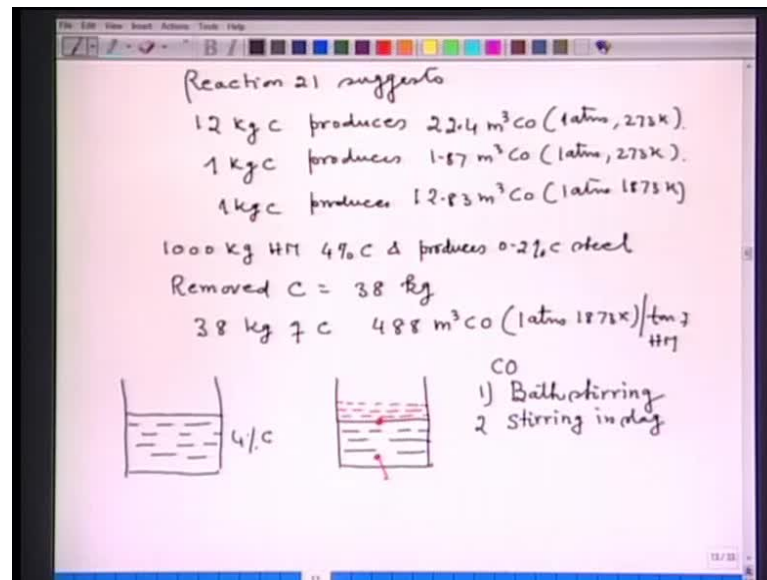 File Edit View Insert Actions Tools Help
Reaction 21 suggests
12 kg C produces 22.4 m³ CO (1 atm, 273K).
1 kg C produces 1.87 m³ CO (1 atm, 273K).
1 kg C produces 12.83 m³ CO (1 atm 1873K)
1000 kg HM 4% C & produces 0.2% C steel
Removed C = 38 kg
38 kg of C 488 m³ CO (1 atm 1873K)/ton of HM
CO
1) Bath stirring
2 Stirring in slag
4% C
13/33